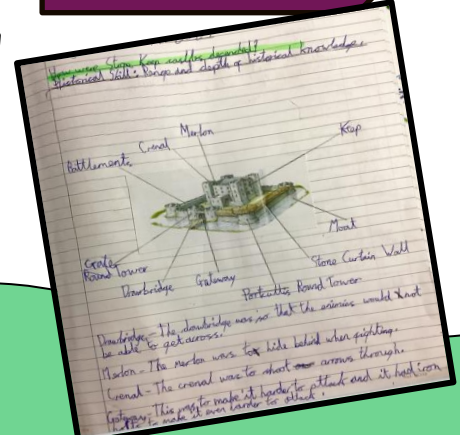 How were Stone Keep castles defended?
Historical Skill: Range and depth of historical knowledge.
Merlon
Crenal
Keep
Battlements
Moat
Stone Curtain Wall
Round Tower
Drawbridge
Gateway
Portcullis Round Tower
Drawbridge - The drawbridge was so that the enemies would not
be able to get across.
Merlon - The merlon was to hide behind when fighting.
Crenal - The crenal was to shoot arrows through.
Gateway - This was to make it harder to attack and it had iron
to make it even harder to attack.